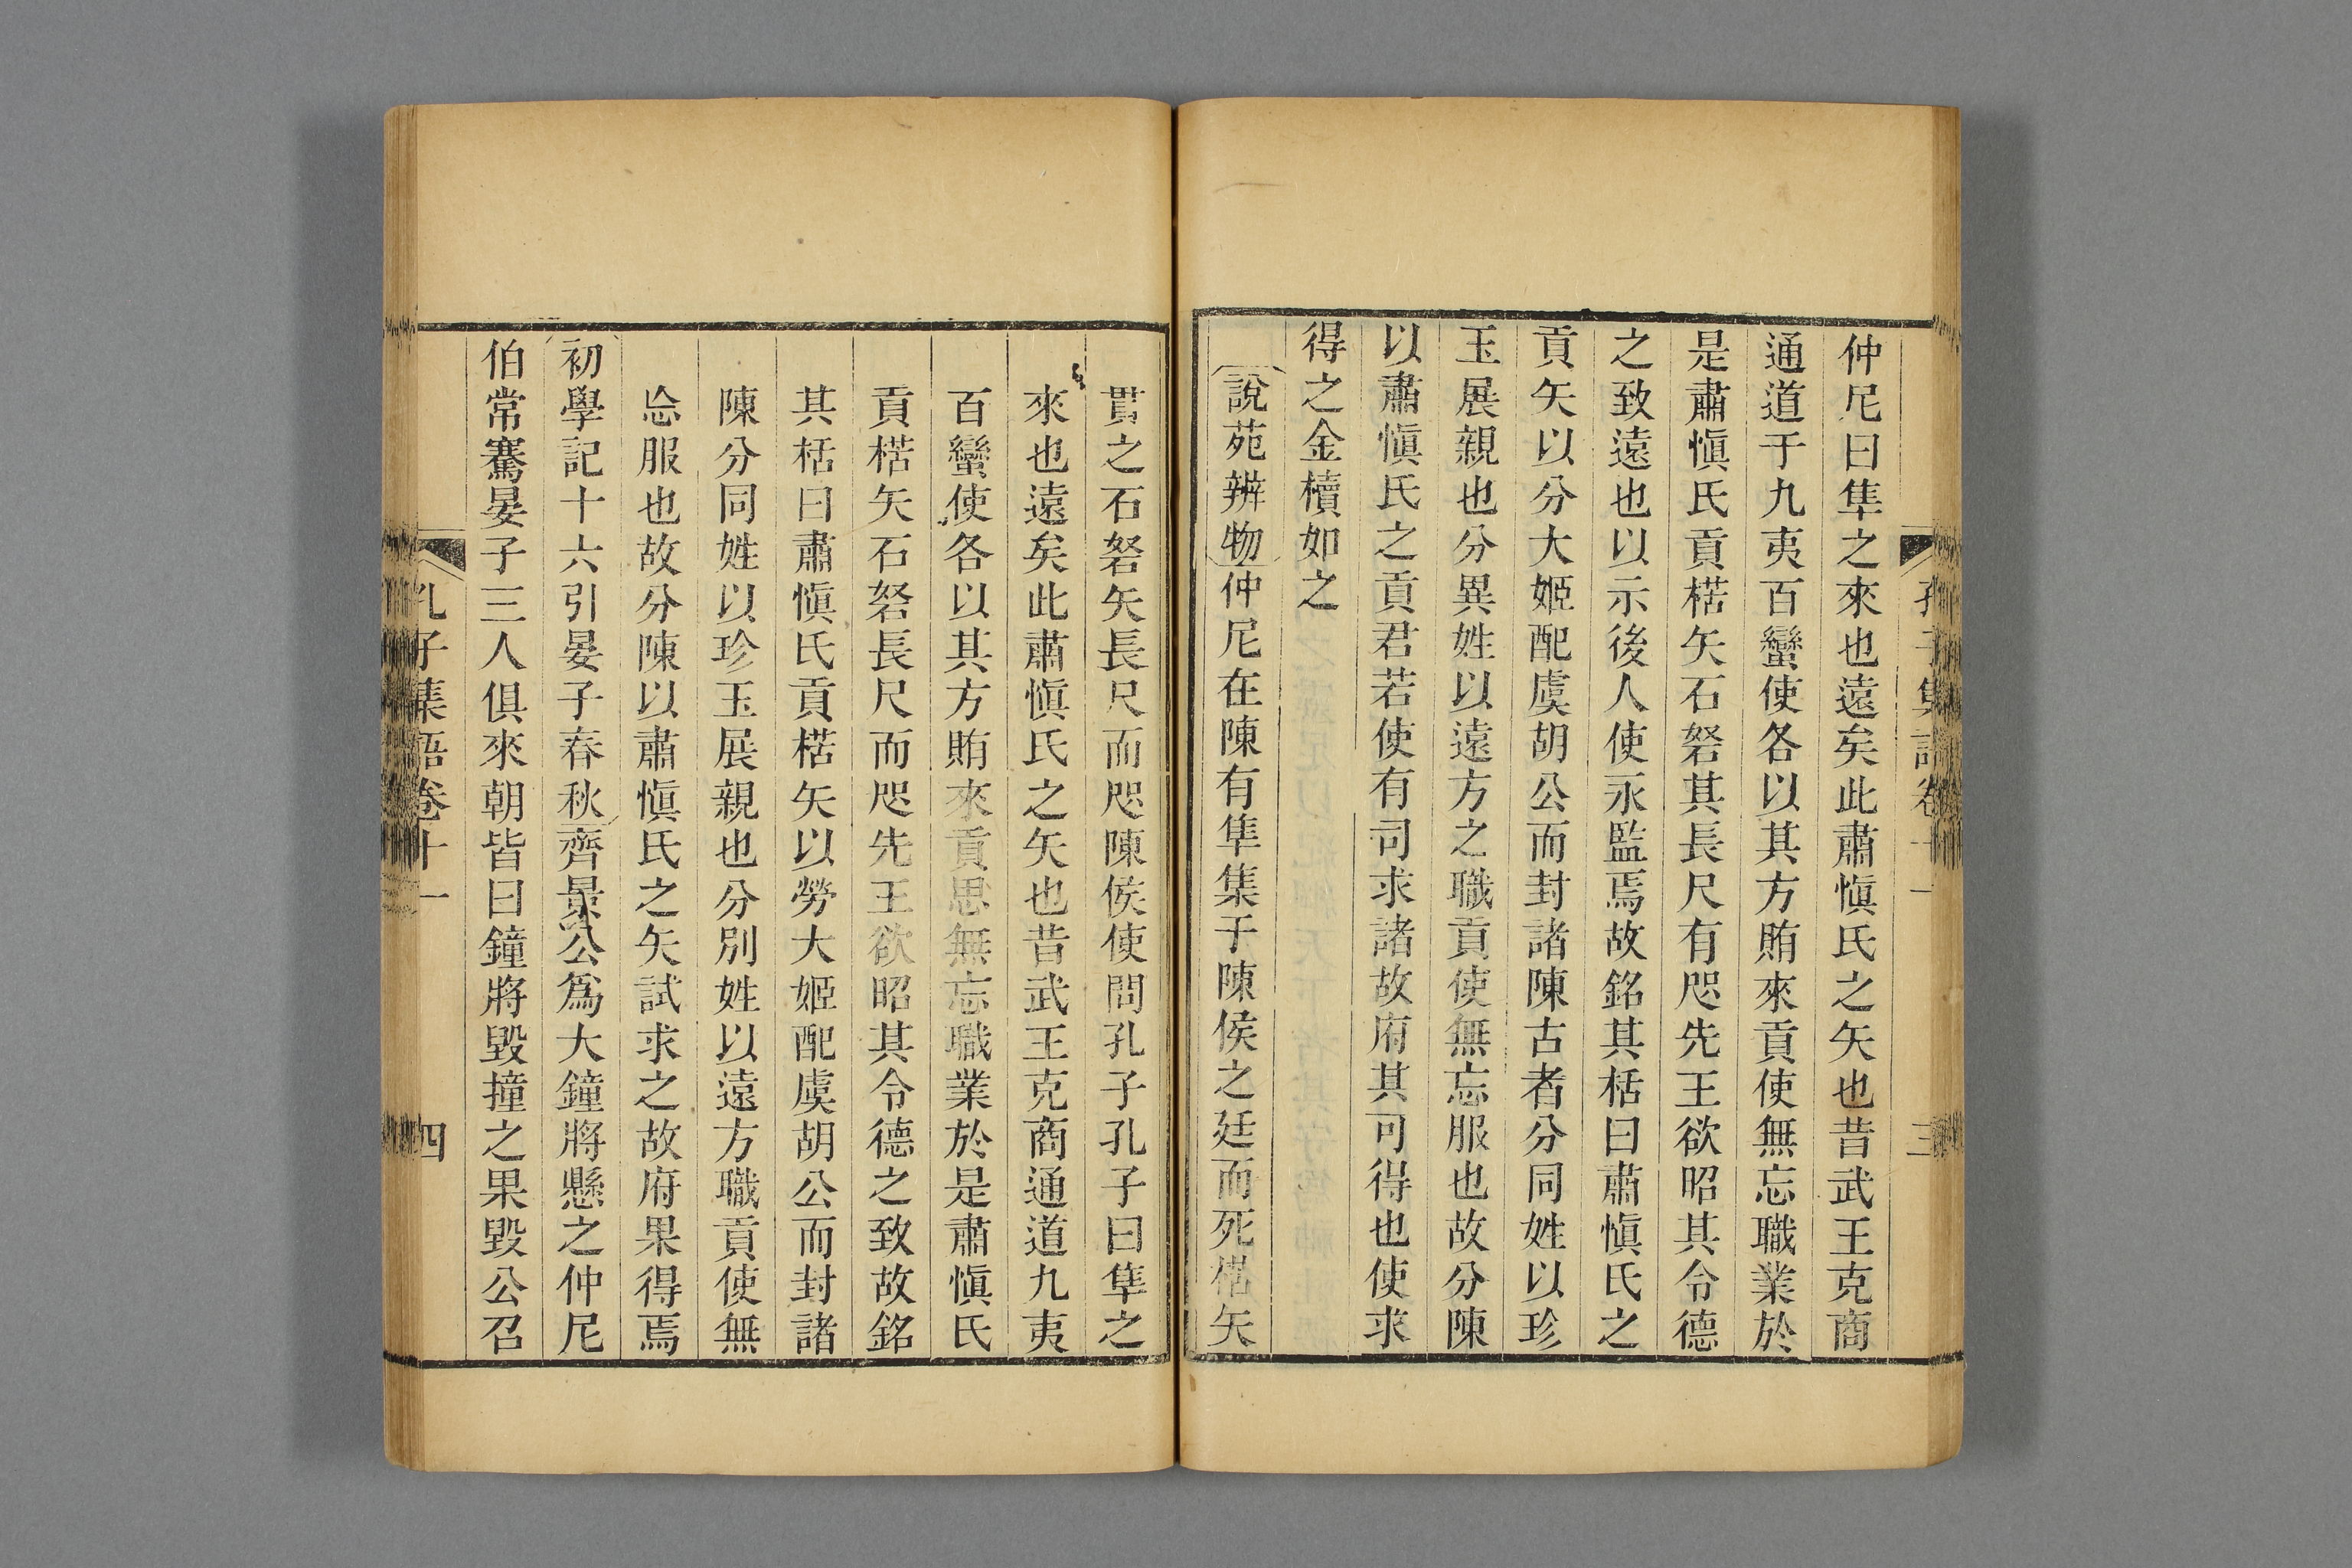 孔子集語卷十一 三
仲尼曰隼之來也遠矣此肅愼氏之矢也昔武王克商
通道于九夷百蠻使各以其方賄來貢使無忘職業於
是肅愼氏貢楛矢石砮其長尺有咫先王欲昭其令德
之致遠也以示後人使永監焉故銘其栝曰肅愼氏之
貢矢以分大姬配虞胡公而封諸陳古者分同姓以珍
玉展親也分異姓以遠方之職貢使無忘服也故分陳
以肅愼氏之貢君若使有司求諸故府其可得也使求
得之金櫝如之
說苑辨物仲尼在陳有隼集于陳侯之廷而死楛矢
貫之石砮矢長尺而咫陳侯使問孔子孔子曰隼之
來也遠矣此肅愼氏之矢也昔武王克商通道九夷
百蠻使各以其方賄來貢思無忘職業於是肅愼氏
貢楛矢石砮長尺而咫先王欲昭其令德之致故銘
其栝曰肅愼氏貢楛矢以勞大姬配虞胡公而封諸
陳分同姓以珍玉展親也分別姓以遠方職貢使無
忘服也故分陳以肅愼氏之矢試求之故府果得焉
初學記十六引晏子春秋齊景公爲大鐘將懸之仲尼
伯常騫晏子三人俱來朝皆曰鐘將毀撞之果毀公召
孔子集語卷十一 四